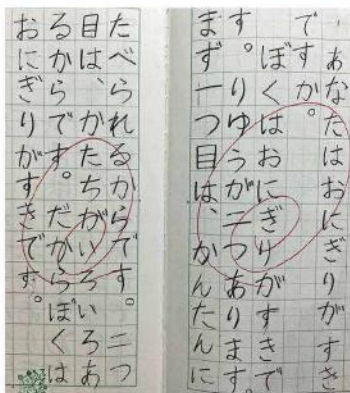 あなたはおにぎりがすき
ですか。
ぼくはおにぎりがすきで
す。りゆうが二つあります。
まず一つ目は、かんたんに
たべられるからです。二つ
目は、かたちがいろいろあ
るからです。だからぼくは
おにぎりがすきです。